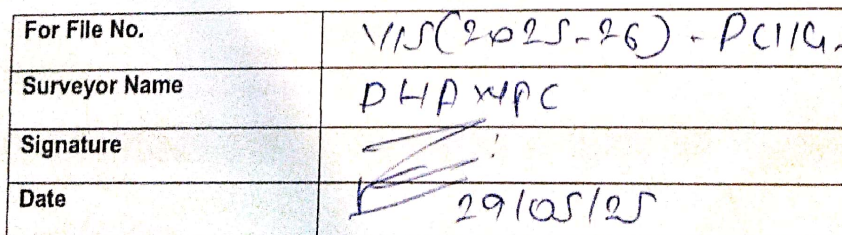 For File No. VIS(2025-26) - PC116.
Surveyor Name
Signature
Date 29/05/25